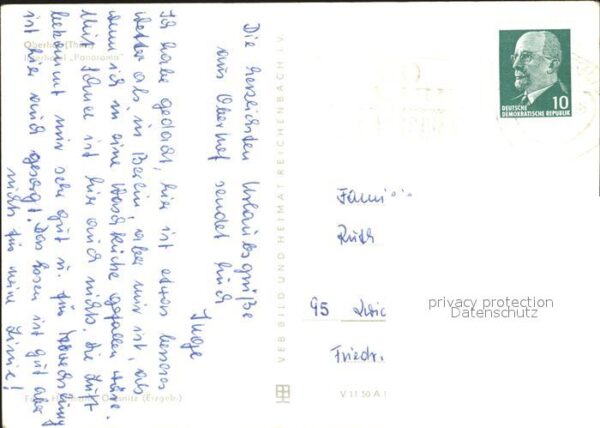 Die herzlichsten Urlaubsgrüße
aus Oberhof sendet Euch
Inge
Ich habe gedacht, hier ist etwas besseres
Wetter als in Berlin, aber mir ist, als
wenn ich in eine Waschküche gefallen wäre.
Mit Sonne ist hier auch nichts. Die Luft
bekommt mir sehr gut u. für Abwechslung
ist hier auch gesorgt. Das Essen ist gut aber
nichts für meine Linie!
Oberhof (Thür.)
"Panorama"
VEB BILD UND HEIMAT REICHENBACH I. V.
V 11 50 A 1
DEUTSCHE
DEMOKRATISCHE REPUBLIK
10
Famili
Ruth
95
Friedr.
privacy protection
Datenschutz